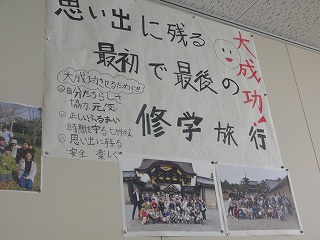 思い出に残る
最初で最後の
修学旅行
大成功!
大成功させるために!!
自分たちらしさ
協力 元気
正しいふるまい
時間を守る
思い出に残る
安全 楽しく